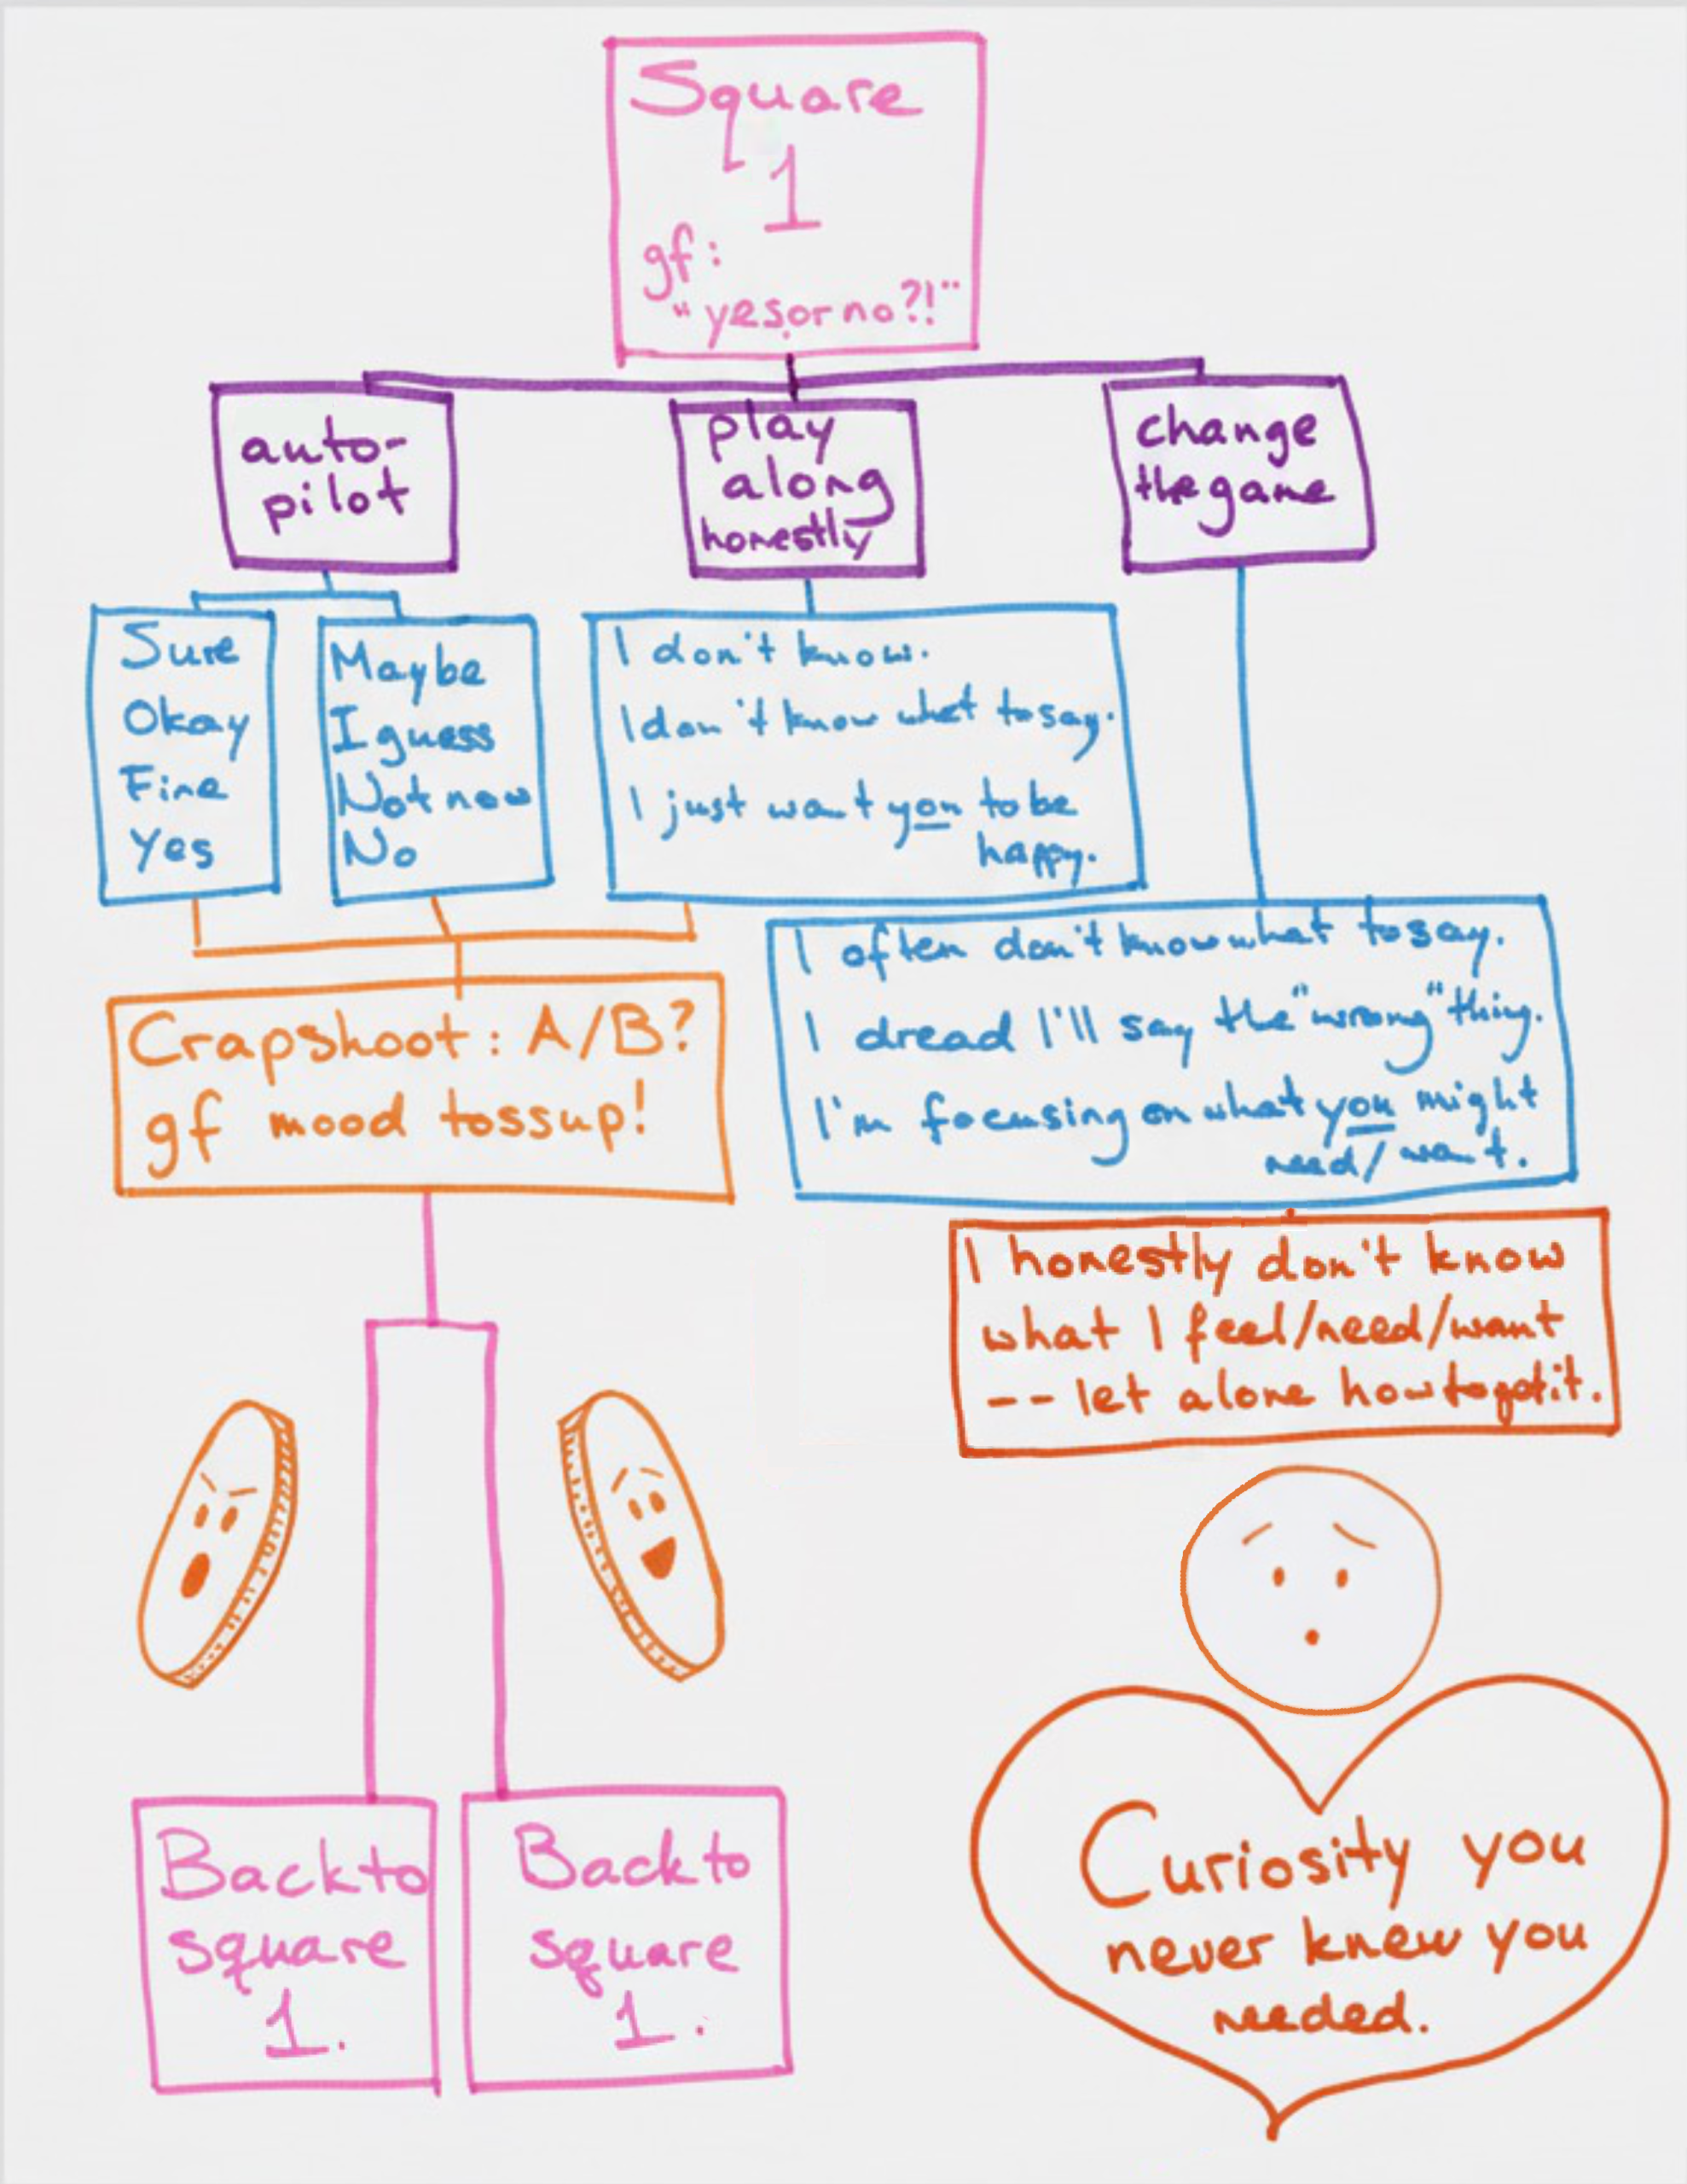 Square
1
gf:
"yes or no?!"
auto-
pilot
play
along
honestly
change
the game
Sure
Okay
Fine
Yes
Maybe
I guess
Not now
No
I don't know.
I don't know what to say.
I just want you to be
happy.
I often don't know what to say.
I dread I'll say the "wrong" thing.
I'm focusing on what you might
need/want.
Crapshoot: A/B?
gf mood tossup!
I honestly don't know
what I feel/need/want
-- let alone how to get it.
Back to
square
1.
Back to
square
1.
Curiosity you
never knew you
needed.